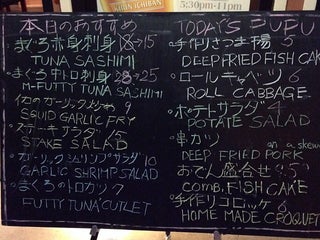 SHIN ICHIBAN
5:30pm-11pm
本日のおすすめ
まぐろ赤身刺身 18→15
TUNA SASHIMI
まぐろ中トロ刺身 28→25
M-FUTTY TUNA SASHIMI
イカのガーリック炒め 9
SQUID GARLIC FRY
ステーキサラダ 15
STAKE SALAD
ガーリックシュリンプサラダ 10
GARLIC SHRIMP SALAD
まぐろのトロカツ 7
FUTTY TUNA CUTLET
TODAY'S PUPU
手作りさつま揚 5
DEEP FRIED FISH CAKE
ロールキャベツ 6
ROLL CABBAGE
ポテトサラダ 4
POTATE SALAD
串カツ
on a skewer
DEEP FRIED PORK
おでん盛合せ 8.5
COMB. FISH CAKE
手作りコロッケ 6
HOME MADE CROQUET